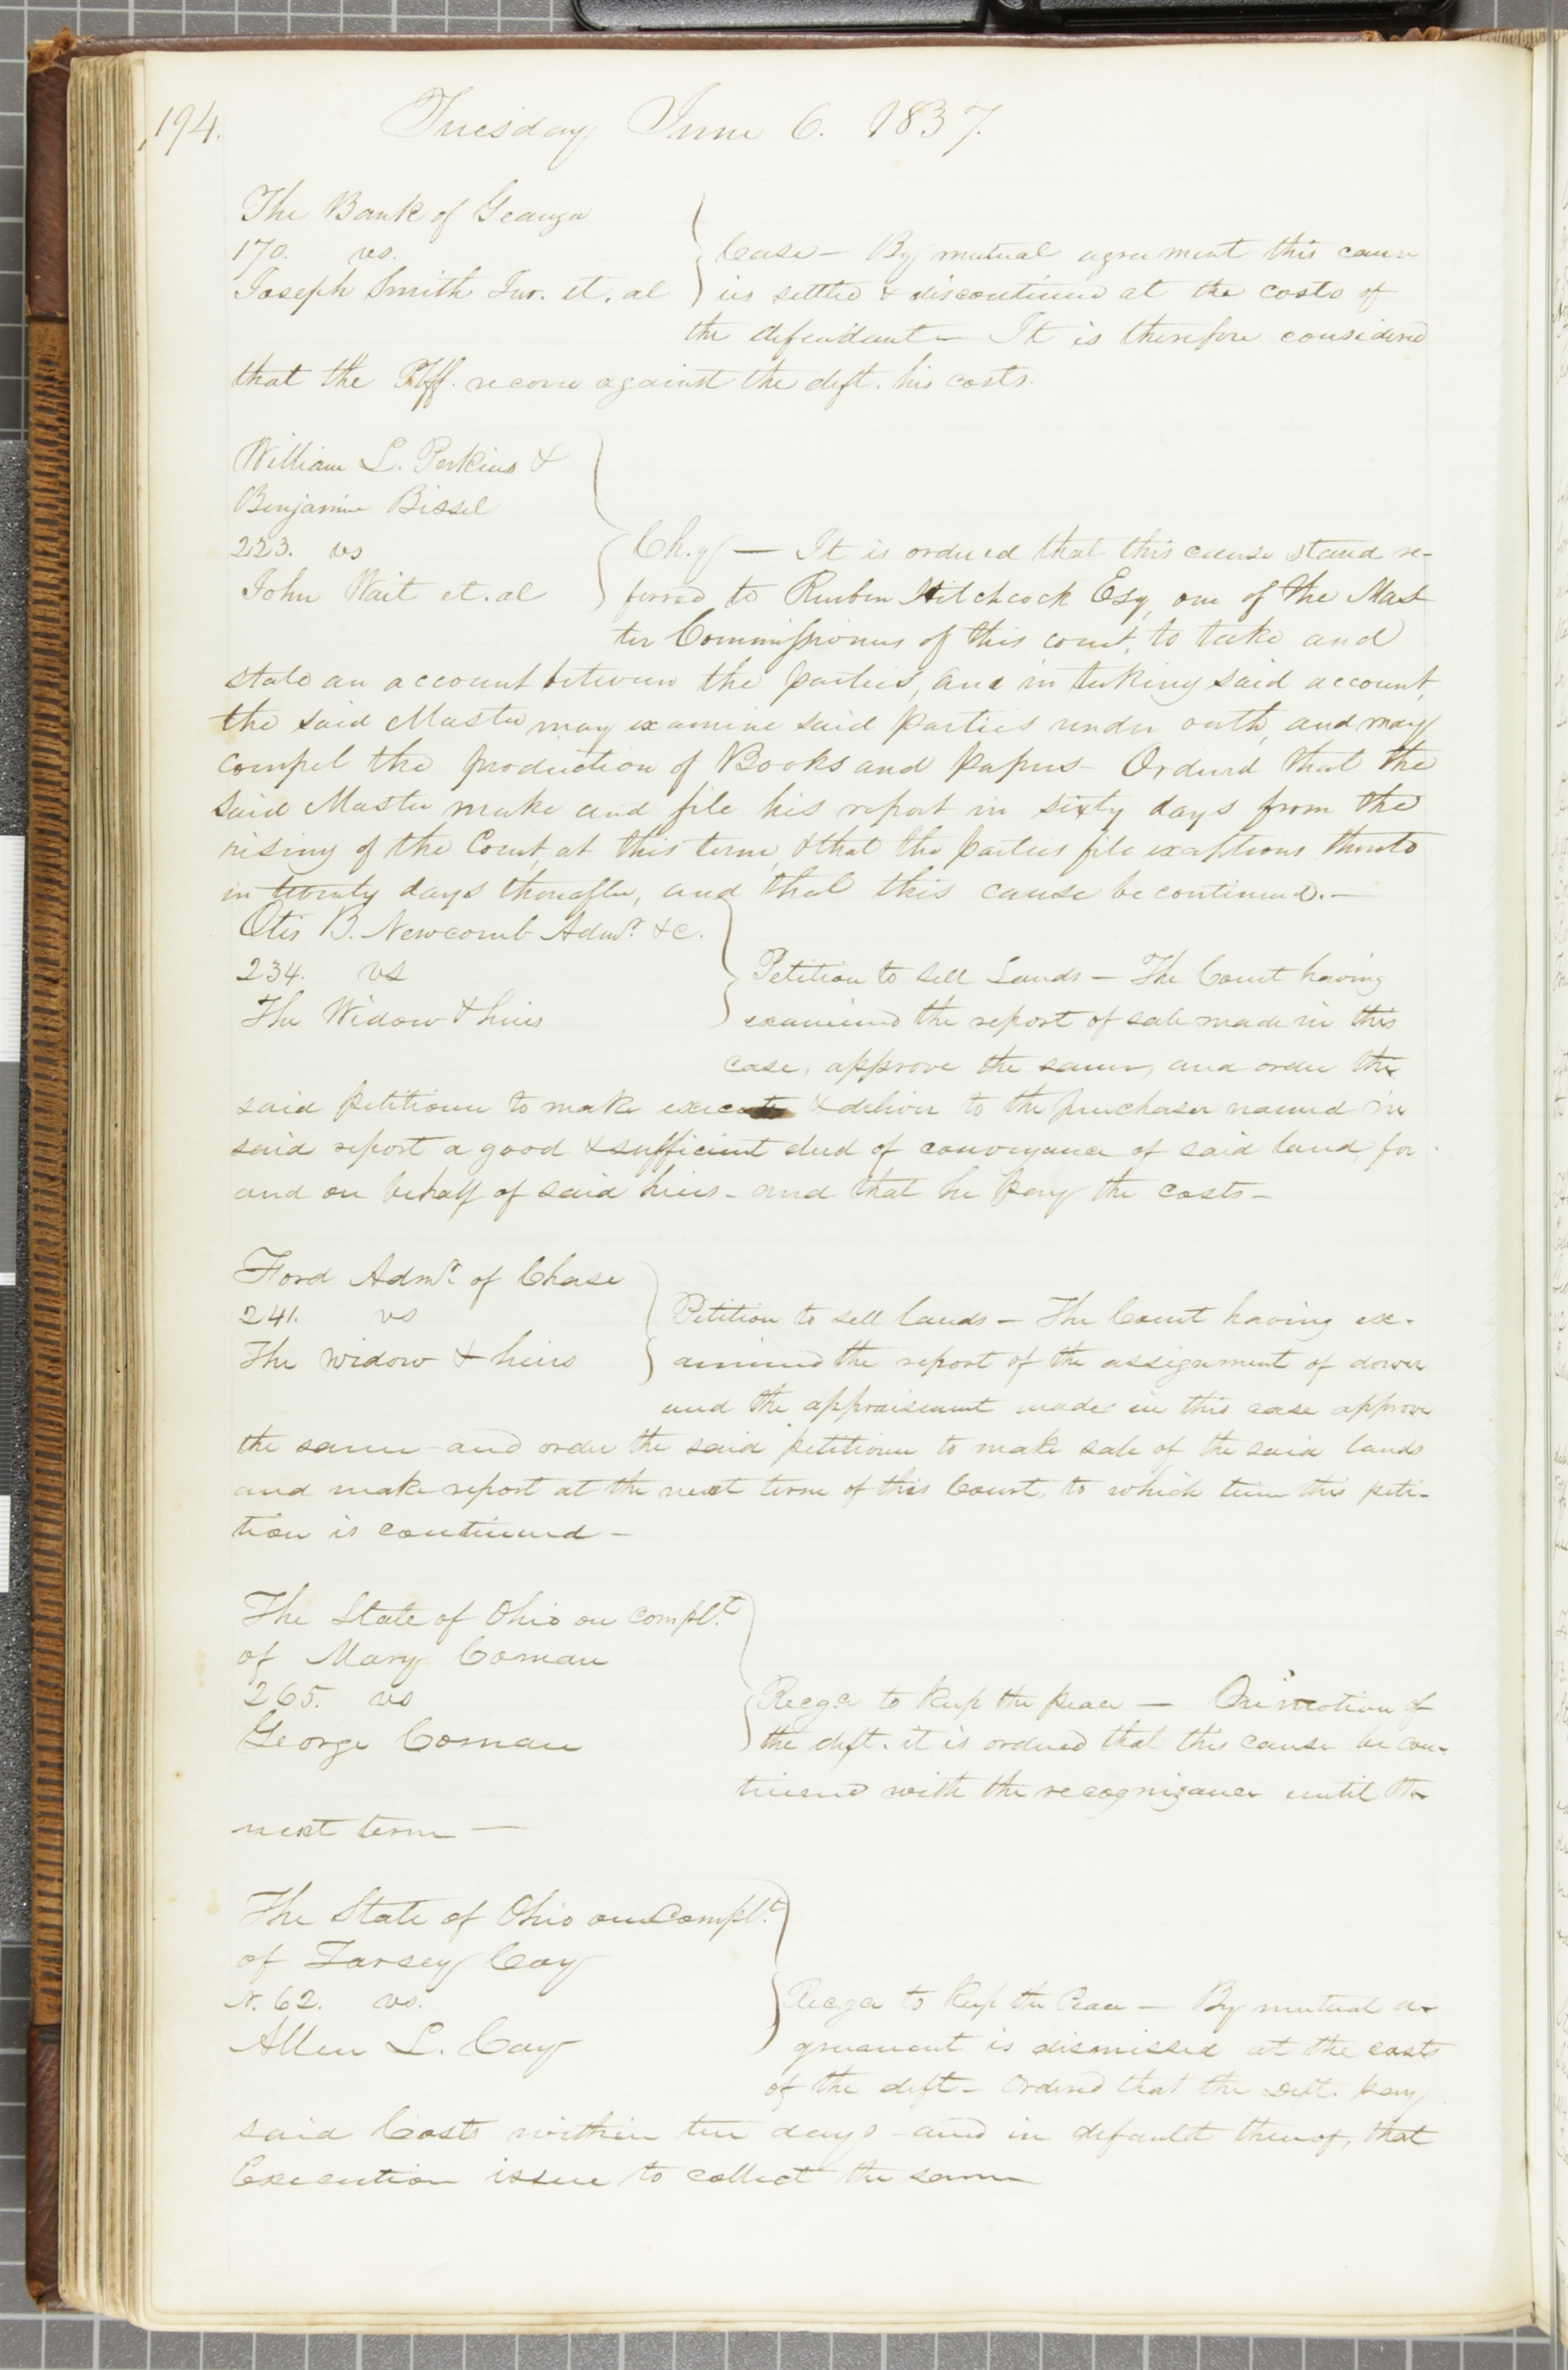 194. Tuesday June 6. 1837.
The Bank of Geauga
170. vs.
Joseph Smith Junr. et. al
Case — By mutual agreement this cause
is settled & discontinued at the costs of
the defendant — It is therefore considered
that the Plff. recover against the deft. his costs.
William L. Perkins &
Benjamin Bissel
223. vs
John Wait et. al
Ch.y — It is ordered that this cause stand re-
ferred to Reuben Hitchcock Esq, one of the Mas
ter Commissioners of this court, to take and
state an account between the parties, and in taking said account,
the said Master may examine said parties under oath, and may
compel the production of Books and papers — Ordered that the
said Master make and file his report in sixty days from the
rising of the Court, at this term, & that the parties file exceptions thereto
in twenty days thereafter, and that this cause be continued. —
Otis B. Newcomb Admr. &c.
234. vs
The Widow & heirs
Petition to sell Lands — The Court having
examined the report of sale made in this
case, approve the same, and order the
said petitioner to make execute & deliver to the purchaser named in
said report a good & sufficient deed of conveyance of said land, for
and on behalf of said heirs — and that he pay the costs —
Ford Admr. of Chase
241. vs
The widow & heirs
Petition to sell lands — The Court having ex-
amined the report of the assignment of dower
and the appraisement made in this case approve
the same — and order the said petitioner to make sale of the said lands
and make report at the next term of this Court, to which time this peti-
tion is continued —
The State of Ohio on complt.
of Mary Coman
265. vs
George Coman
Recge to keep the peace — On motion of
the deft. it is ordered that this cause be con-
tinued with the recognizance until the
next term —
The State of Ohio on Complt.
of Tarsey Coy
N. 62. vs.
Allen L. Coy
Recge to keep the Peace — By mutual a-
greement is dismissed at the costs
of the deft — Ordered that the deft. pay
said Costs within ten days — and in default thereof, that
Execution issue to collect the same